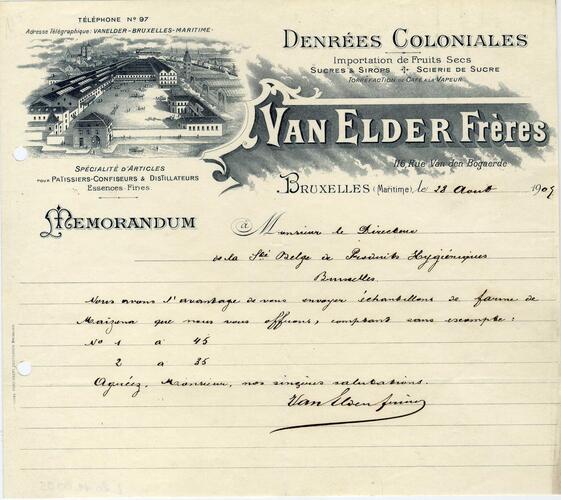 TÉLÉPHONE Nº 97
Adresse Télégraphique: VANELDER-BRUXELLES-MARITIME
DENRÉES COLONIALES
Importation de Fruits Secs
SUCRES & SIROPS SCIERIE DE SUCRE
TORRÉFACTION DE CAFÉ A LA VAPEUR
VAN ELDER Frères
116 Rue Van den Bogaerde
SPÉCIALITÉ D'ARTICLES
POUR PATISSIERS-CONFISEURS & DISTILLATEURS
Essences Fines
BRUXELLES (Maritime), le 23 Août 1909
MEMORANDUM
à Monsieur le Directeur
de la Sté Belge de Produits Hygiéniques
Bruxelles
Nous avons l'avantage de vous envoyer échantillons de farine de
Maïzena que nous vous offrons, comptant sans escompte:
Nº 1 à 45
2 à 35
Agréez, Monsieur, nos sincères salutations.
Van Elder frères